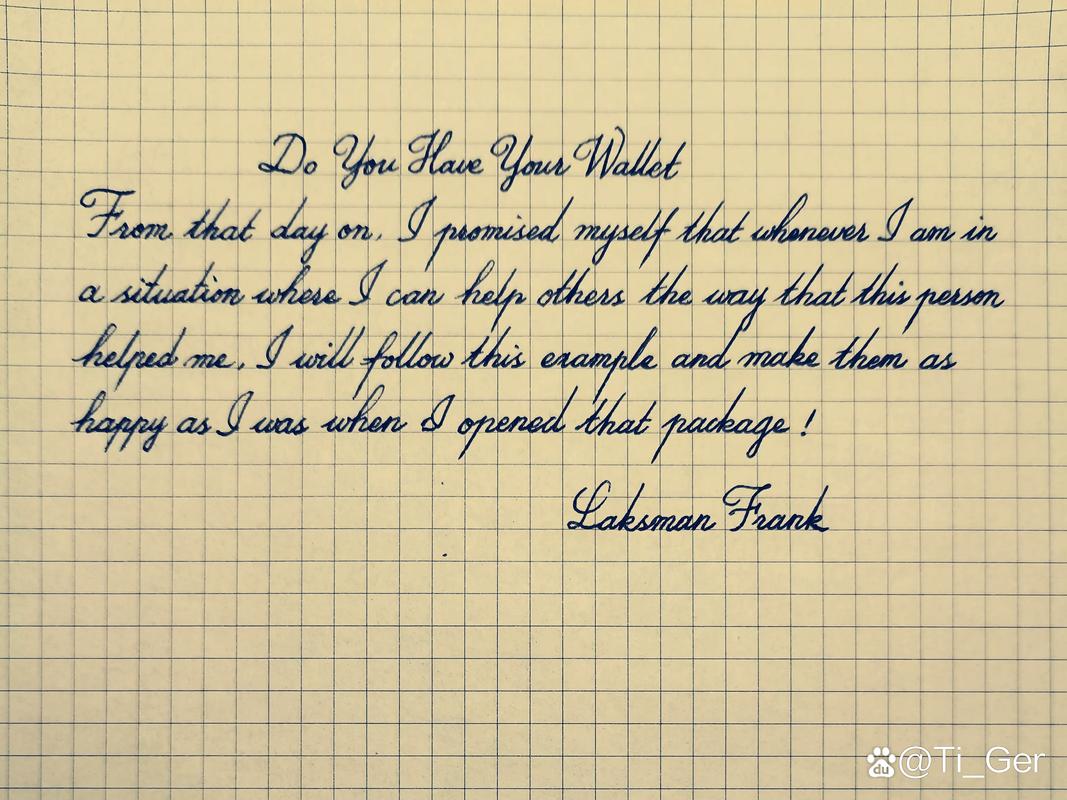 Do You Have Your Wallet
From that day on, I promised myself that whenever I am in
a situation where I can help others the way that this person
helped me, I will follow this example and make them as
happy as I was when I opened that package!
Laksman Frank
du @Ti_Ger